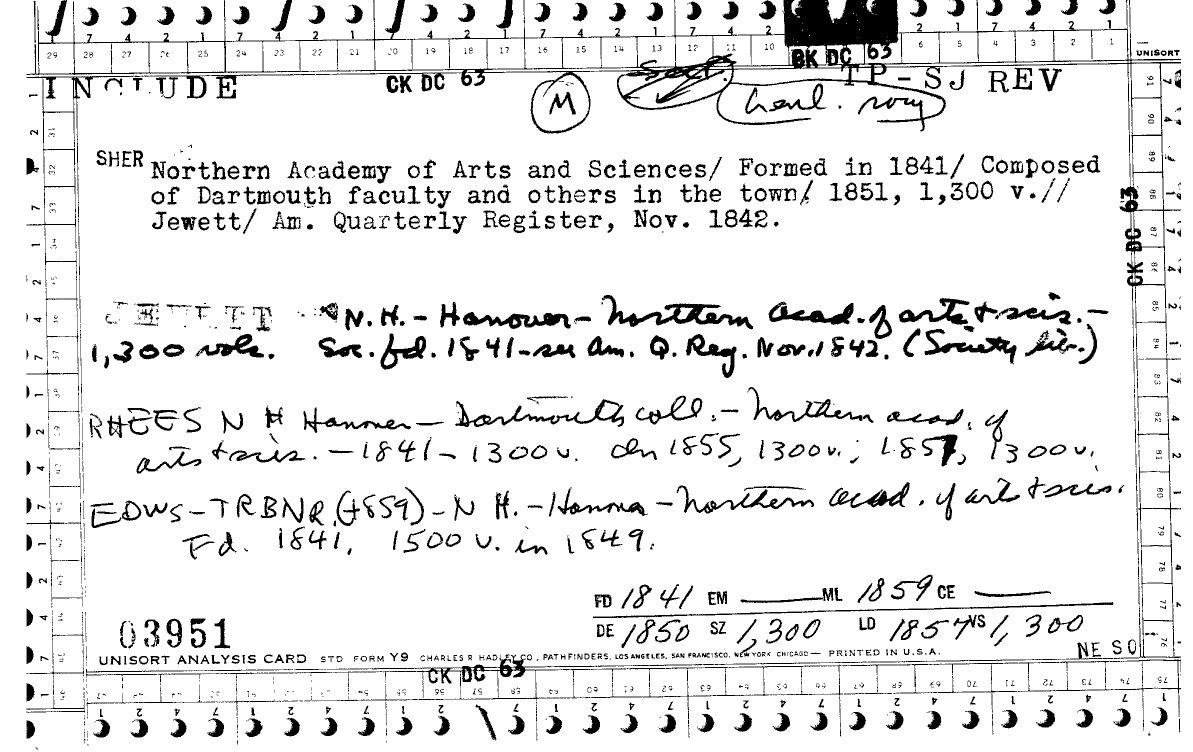 29 28 27 26 25 24 23 22 21 20 19 18 17 16 15 14 13 12 11 10 6 5 4 3 2 1 UNISORT
BK DC 63
INCLUDE CK DC 63 TP-SJ REV
M
SHER Northern Academy of Arts and Sciences/ Formed in 1841/ Composed
of Dartmouth faculty and others in the town/ 1851, 1,300 v.//
Jewett/ Am. Quarterly Register, Nov. 1842.
CK DC 63
JEWETT N.H. - Hanover - Northern acad. of arts & scis. -
1,300 vols. Soc. fd. 1841 - see Am. Q. Reg. Nov. 1842. (Society lib.)
RHEES N H Hanover - Dartmouth coll. - Northern acad. of
arts & scis. - 1841 - 1300 v. In 1855, 1300 v.; 1857, 1300 v.
EDWS-TRBNR (1859) - N H. - Hanover - Northern acad. of arts & scis.
Fd. 1841, 1500 v. in 1849.
FD 1841 EM ML 1859 CE
DE 1850 SZ 1,300 LD 1857 VS 1,300
03951
NE SO
UNISORT ANALYSIS CARD STD FORM Y9 CHARLES R HADLEY CO., PATHFINDERS, LOS ANGELES, SAN FRANCISCO, NEW YORK CHICAGO — PRINTED IN U.S.A.
CK DC 63